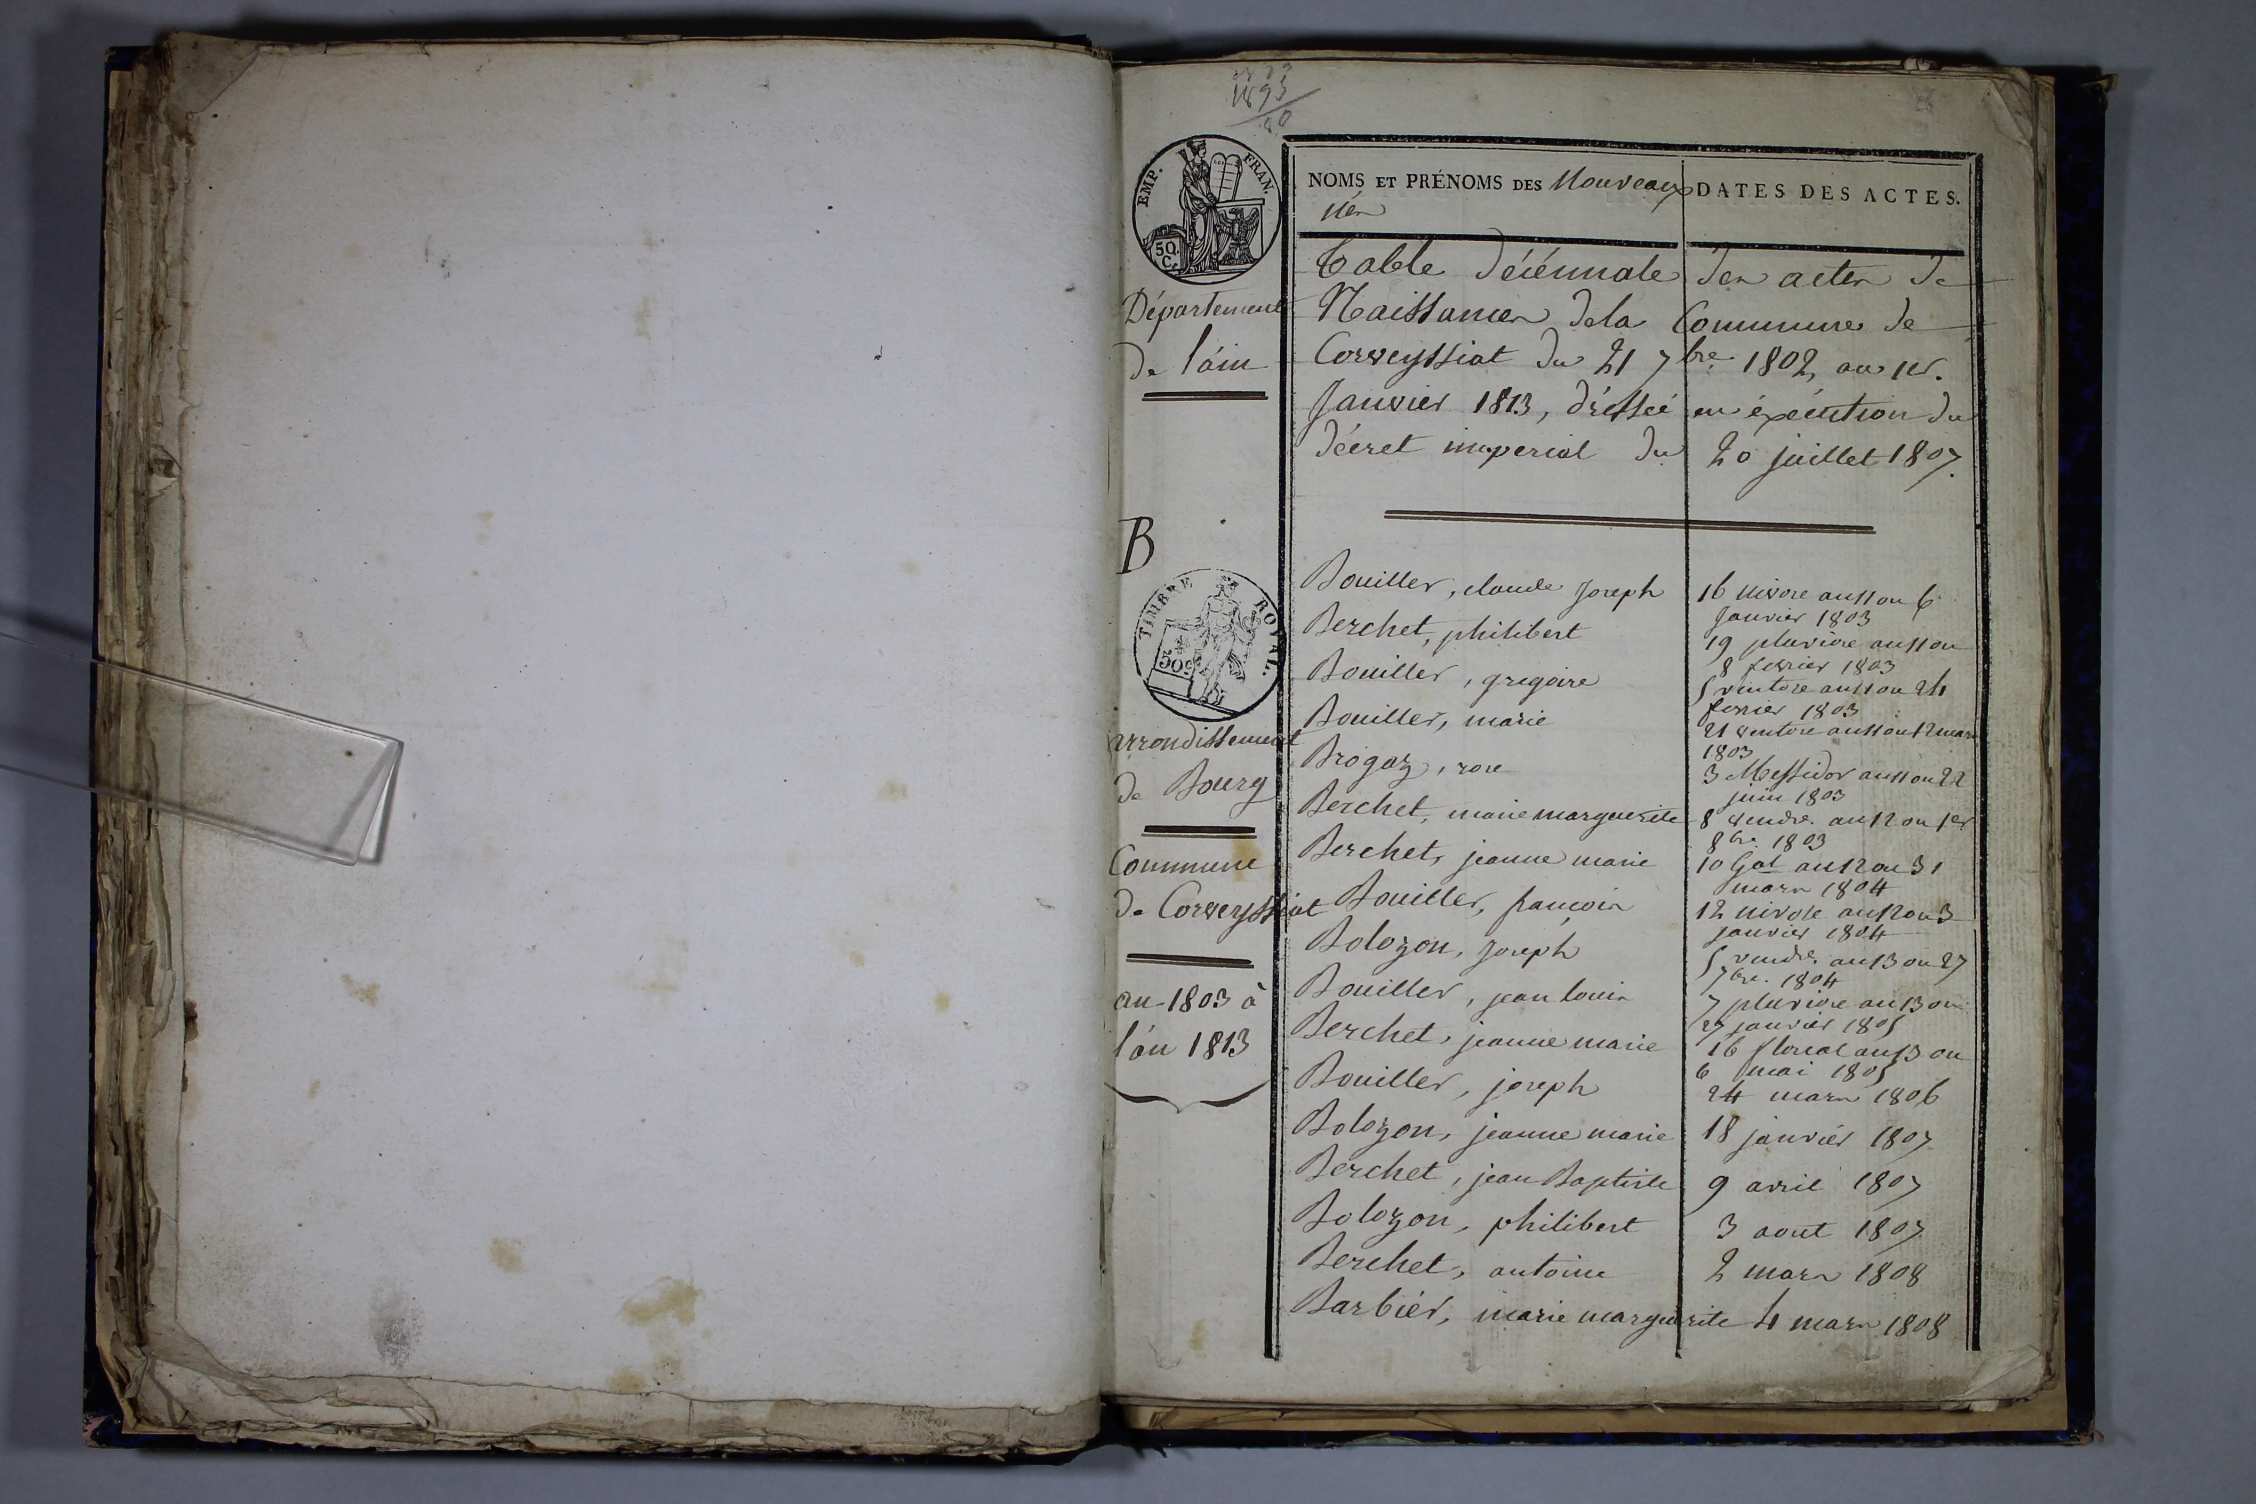 1893
EMP. FRAN.
50 C.
Département
de l'áin
B
TIMBRE ROYAL.
50 c
arrondissement
de Bourg
Commune
de Corveyssiat
an 1803 à
l'án 1813
NOMS ET PRÉNOMS DES Nouveaux DATES DES ACTES.
nés
Table décénnale des actes de
Naissances de la Commune de
Corveyssiat du 21 7bre 1802, au 1er.
Janvier 1813, dréssée en éxécution du
décret imperial du 20 juillet 1807.
Bouiller, claude Joseph 16 nivose an 11 ou 6
Janvier 1803
Berchet, philibert 19 pluviose an 11 ou
8 fevrier 1803
Bouiller, gregoire 5 ventose an 11 ou 24
fevrier 1803
Bouiller, marie 21 ventose an 11 ou 12 mars
1803
Brogaz, rose 3 Messidor an 11 ou 22
juin 1803
Berchet, marie marguerite 8 vendre. an 12 ou 1er
8bre. 1803
Berchet, jeanne marie 10 Gal an 12 ou 31
mars 1804
Bouiller, françois 12 nivose an 12 ou 3
janvier 1804
Bolozon, Joseph 5 vendre. an 13 ou 27
7bre. 1804
Bouiller, jean louis 7 pluviose an 13 ou
27 janvier 1805
Berchet, jeanne marie 16 floreal an 13 ou
6 mai 1805
Bouiller, joseph 24 mars 1806
Bolozon, jeanne marie 18 janviér 1807
Berchet, jean Baptiste 9 avril 1807
Bolozon, philibert 3 aout 1807
Berchet, antoine 2 mars 1808
Barbiér, marie marguerite 4 mars 1808